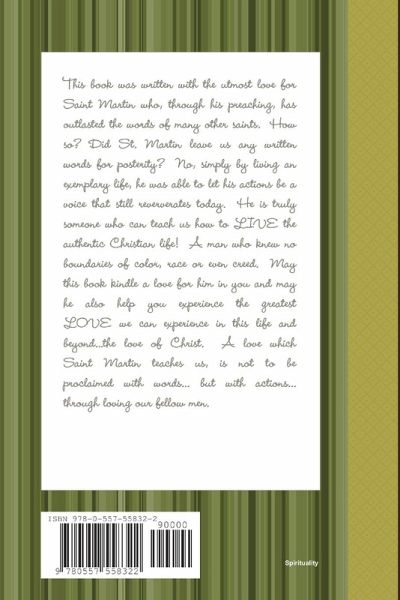 This book was written with the utmost love for
Saint Martin who, through his preaching, has
outlasted the words of many other saints. How
so? Did St. Martin leave us any written
words for posterity? No, simply by living an
exemplary life, he was able to let his actions be a
voice that still reververates today. He is truly
someone who can teach us how to LIVE the
authentic Christian life! A man who knew no
boundaries of color, race or even creed. May
this book kindle a love for him in you and may
he also help you experience the greatest
LOVE we can experience in this life and
beyond...the love of Christ. A love which
Saint Martin teaches us, is not to be
proclaimed with words... but with actions...
through loving our fellow men.
ISBN 978-0-557-55832-2
90000
9 780557 558322
Spirituality